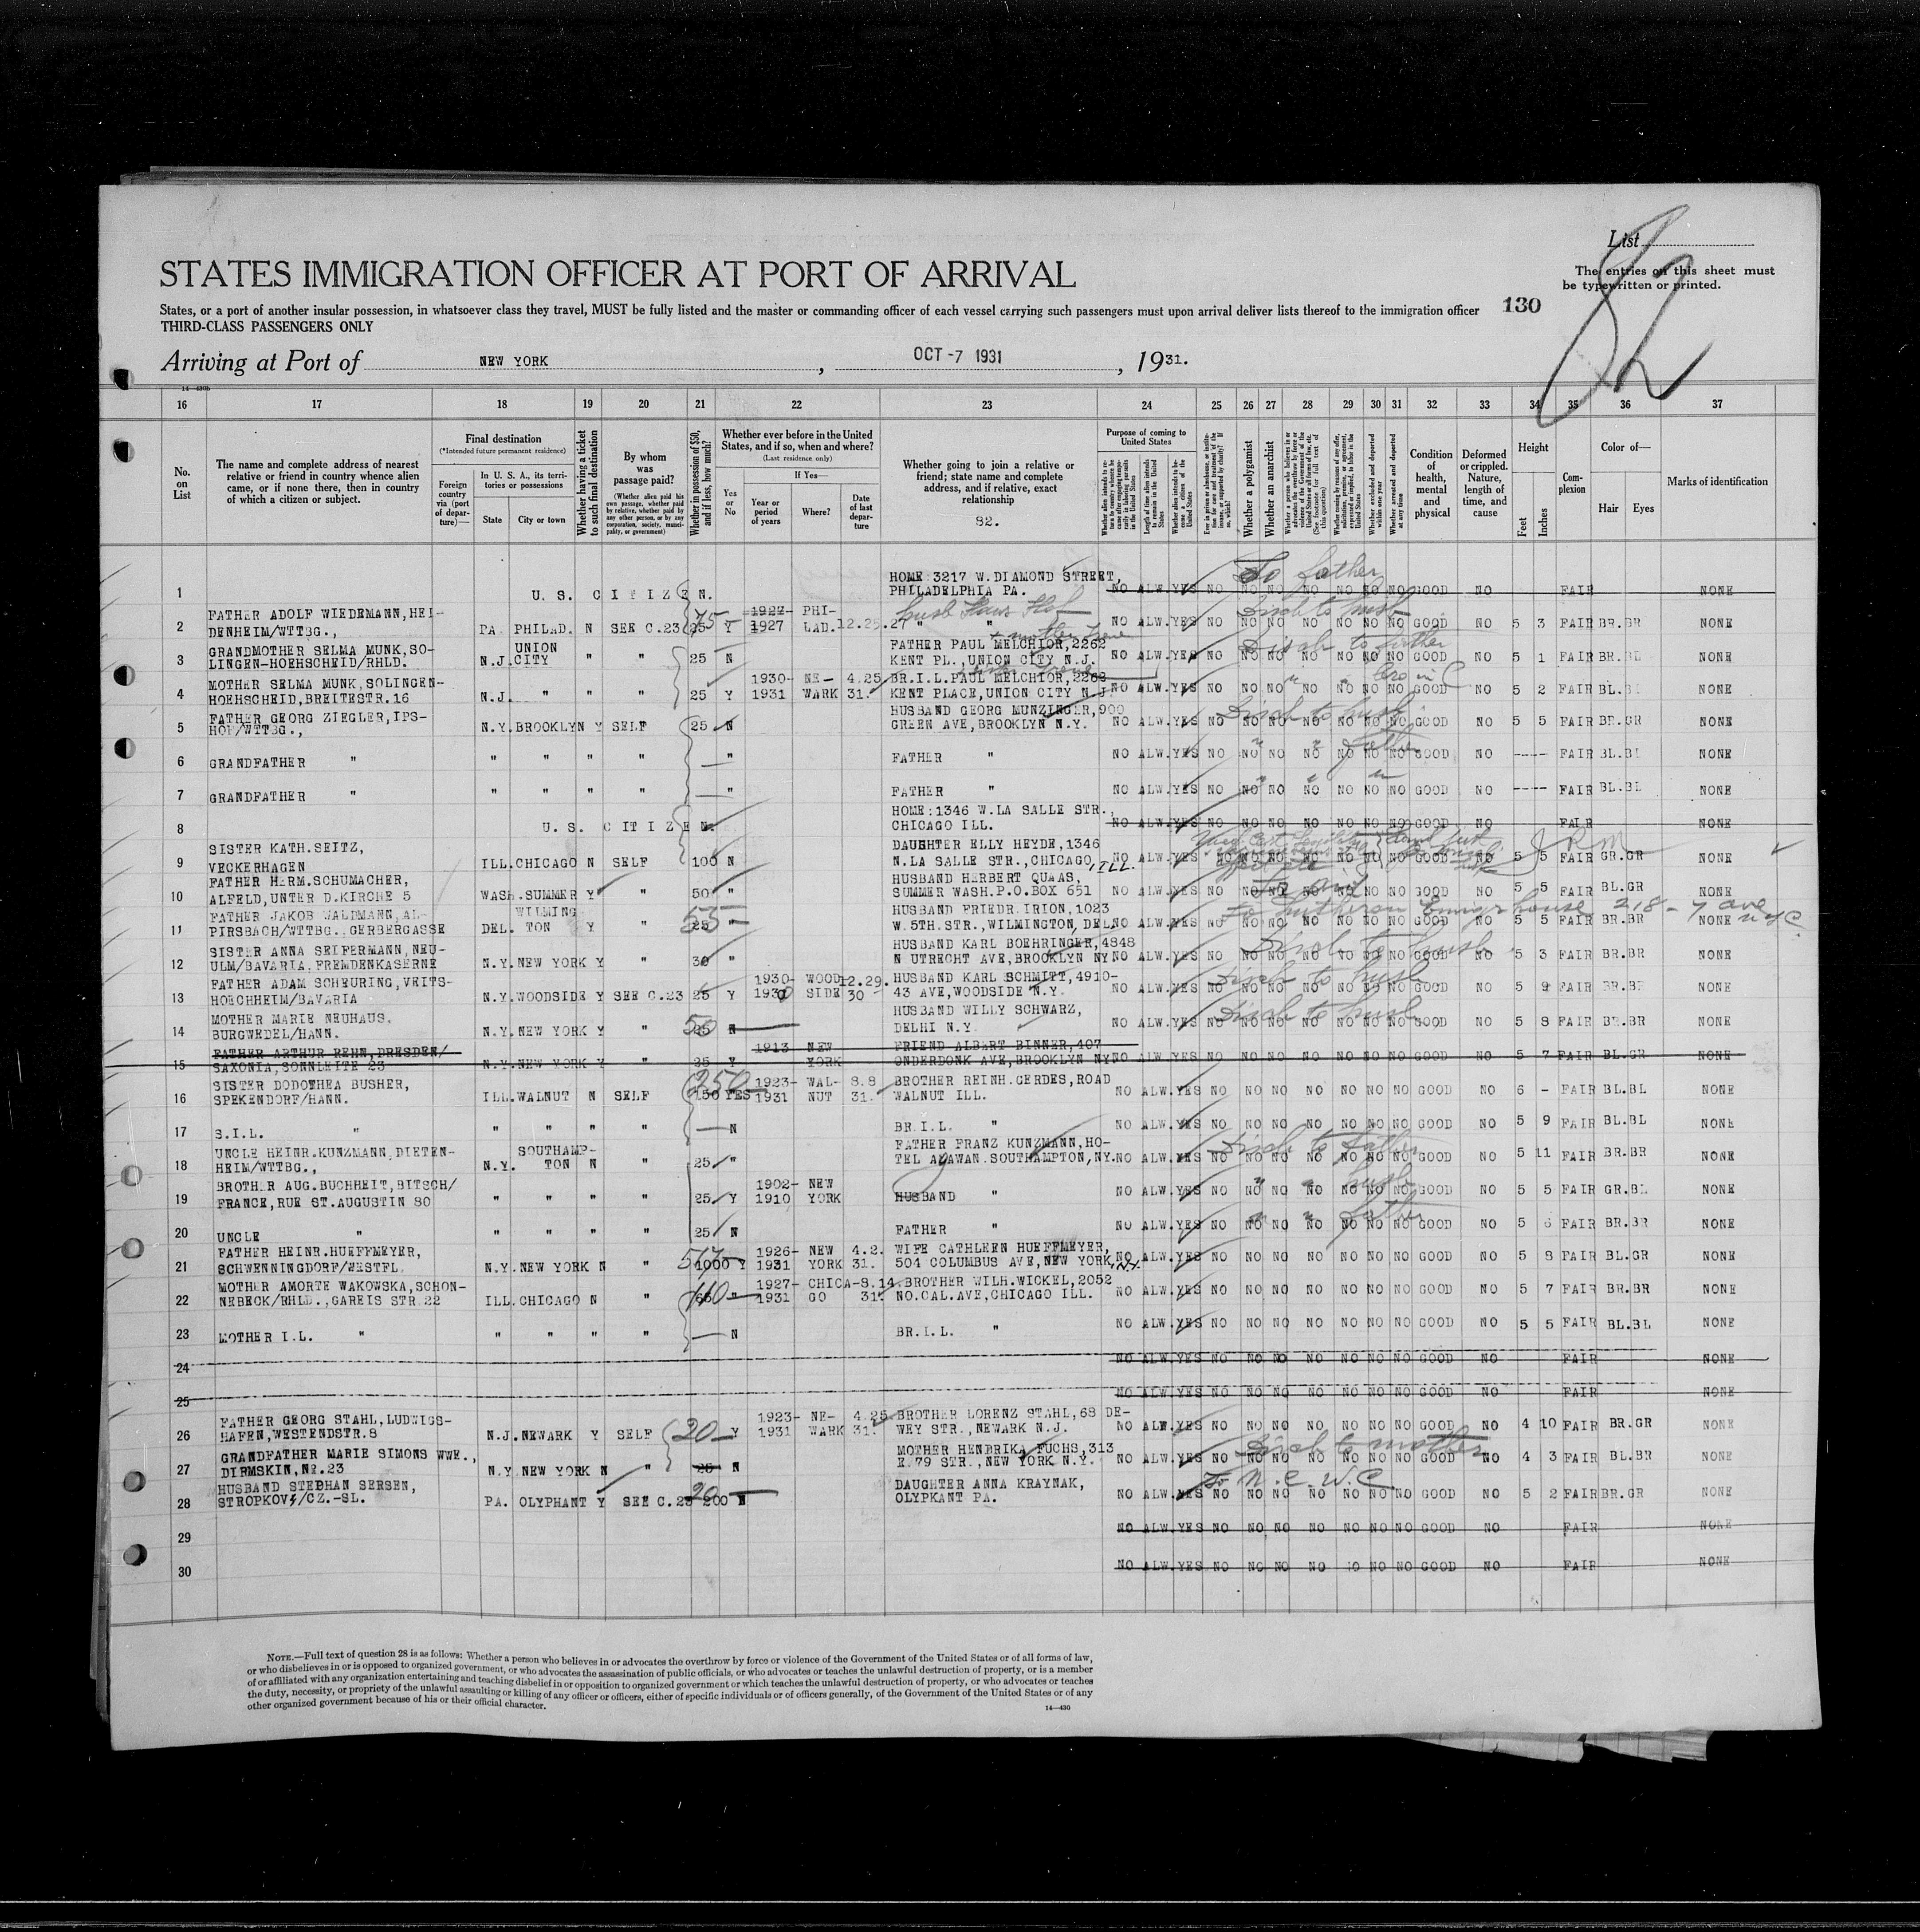 List
82
STATES IMMIGRATION OFFICER AT PORT OF ARRIVAL
The entries on this sheet must
be typewritten or printed.
States, or a port of another insular possession, in whatsoever class they travel, MUST be fully listed and the master or commanding officer of each vessel carrying such passengers must upon arrival deliver lists thereof to the immigration officer 130
THIRD-CLASS PASSENGERS ONLY
Arriving at Port of NEW YORK , OCT -7 1931 , 1931.
14-430b
16 17 18 19 20 21 22 23 24 25 26 27 28 29 30 31 32 33 34 35 36 37
No. on List
The name and complete address of nearest relative or friend in country whence alien came, or if none there, then in country of which a citizen or subject.
Final destination
(*Intended future permanent residence)
Foreign country via (port of departure)—
In U. S. A., its territories or possessions
State City or town
Whether having a ticket to such final destination
By whom was passage paid?
(Whether alien paid his own passage, whether paid by relative, whether paid by any other person, or by any corporation, society, municipality, or government)
Whether in possession of $50, and if less, how much?
Whether ever before in the United States, and if so, when and where?
(Last residence only)
Yes or No
If Yes—
Year or period of years
Where?
Date of last departure
Whether going to join a relative or friend; state name and complete address, and if relative, exact relationship
82.
Purpose of coming to United States
Whether a polygamist
Whether an anarchist
Condition of health, mental and physical
Deformed or crippled. Nature, length of time, and cause
Height
Feet Inches
Complexion
Color of—
Hair Eyes
Marks of identification
1 U. S. CITIZEN. HOME: 3217 W. DIAMOND STREET, PHILADELPHIA PA. NO ALW. YES NO NO NO NO NO NO NO GOOD NO FAIR NONE
To father
2 FATHER ADOLF WIEDEMANN, HEIDENHEIM/WTTBG., PA. PHILAD. N SEE C.23 25 75 Y 1922-1927 PHILAD. 12.25.27 " " NO ALW. YES NO NO NO NO NO NO NO GOOD NO 5 3 FAIR BR. GR NONE
Disch to husb
3 GRANDMOTHER SELMA MUNK, SOLINGEN-HOEHSCHEID/RHLD. N.J. UNION CITY " " 25 N FATHER PAUL MELCHIOR, 2262 KENT PL., UNION CITY N.J. NO ALW. YES NO NO NO NO NO NO NO GOOD NO 5 1 FAIR BR. BL NONE
Disch to father
4 MOTHER SELMA MUNK, SOLINGEN-HOEHSCHEID, BREITESTR. 16 N.J. " " " 25 Y 1930-1931 NEWARK 4.25.31. BR.I.L. PAUL MELCHIOR, 2262 KENT PLACE, UNION CITY N.J. NO ALW. YES NO NO NO NO NO NO NO GOOD NO 5 2 FAIR BL. BL NONE
5 FATHER GEORG ZIEGLER, IPSHOF/WTTBG., N.Y. BROOKLYN Y SELF 25 N HUSBAND GEORG MUNZINGER, 900 GREEN AVE, BROOKLYN N.Y. NO ALW. YES NO NO NO NO NO NO NO GOOD NO 5 5 FAIR BR. GR NONE
Disch to husb
6 GRANDFATHER " " " " " — " FATHER " NO ALW. YES NO NO NO NO NO NO NO GOOD NO ---- FAIR BL. BL NONE
" " father
7 GRANDFATHER " " " " " — " FATHER " NO ALW. YES NO NO NO NO NO NO NO GOOD NO ---- FAIR BL. BL NONE
8 U. S. CITIZEN. HOME: 1346 W. LA SALLE STR., CHICAGO ILL. NO ALW. YES NO NO NO NO NO NO NO GOOD NO FAIR NONE
9 SISTER KATH. SEITZ, VECKERHAGEN ILL. CHICAGO N SELF 100 N DAUGHTER ELLY HEYDE, 1346 N. LA SALLE STR., CHICAGO, ILL. NO ALW. YES NO NO NO NO NO NO NO GOOD NO 5 5 FAIR GR. GR NONE
10 FATHER HERM. SCHUMACHER, ALFELD, UNTER D. KIRCHE 5 WASH. SUMMER Y " 50 " HUSBAND HERBERT QUAAS, SUMMER WASH. P.O. BOX 651 NO ALW. YES NO NO NO NO NO NO NO GOOD NO 5 5 FAIR BL. GR NONE
11 FATHER JAKOB WALDMANN, ALPIRSBACH/WTTBG. GERBERGASSE DEL. WILMINGTON Y " 25 55 " HUSBAND FRIEDR. IRION, 1023 W. 5TH. STR., WILMINGTON, DEL. NO ALW. YES NO NO NO NO NO NO NO GOOD NO 5 5 FAIR BR. BR NONE
To Lutheran Emigr house 218 - 7 ave NYC.
12 SISTER ANNA SEIFERMANN, NEUULM/BAVARIA, FREMDENKASERNE N.Y. NEW YORK Y " 30 " HUSBAND KARL BOEHRINGER, 4848 N UTRECHT AVE, BROOKLYN NY NO ALW. YES NO NO NO NO NO NO NO GOOD NO 5 3 FAIR BR. BR NONE
Disch to husb
13 FATHER ADAM SCHEURING, VEITSHOECHHEIM/BAVARIA N.Y. WOODSIDE Y SEE C.23 25 Y 1930-1930 WOODSIDE 12.29.30 HUSBAND KARL SCHMITT, 4910-43 AVE, WOODSIDE N.Y. NO ALW. YES NO NO NO NO NO NO NO GOOD NO 5 9 FAIR BR. BR NONE
Disch to husb
14 MOTHER MARIE NEUHAUS, BURGWEDEL/HANN. N.Y. NEW YORK Y " 25 50 N HUSBAND WILLY SCHWARZ, DELHI N.Y. NO ALW. YES NO NO NO NO NO NO NO GOOD NO 5 8 FAIR BR. BR NONE
Disch to husb
15 FATHER ARTHUR REHN, DRESDEN/SAXONIA, SONNLEITE 23 N.Y. NEW YORK Y " 25 Y 1913- NEW YORK FRIEND ALBERT BINNER, 407 ONDERDONK AVE, BROOKLYN NY NO ALW. YES NO NO NO NO NO NO NO GOOD NO 5 7 FAIR BL. GR NONE
16 SISTER DODOTHEA BUSHER, SPEKENDORF/HANN. ILL. WALNUT N SELF 150 250 YES 1923-1931 WALNUT 8.8.31. BROTHER REINH. GERDES, ROAD WALNUT ILL. NO ALW. YES NO NO NO NO NO NO NO GOOD NO 6 - FAIR BL. BL NONE
17 S.I.L. " " " " " — N BR.I.L. " NO ALW. YES NO NO NO NO NO NO NO GOOD NO 5 9 FAIR BL. BL NONE
18 UNCLE HEINR. KUNZMANN, DIETENHEIM/WTTBG., N.Y. SOUTHAMPTON N " 25 " FATHER FRANZ KUNZMANN, HOTEL AGAWAN SOUTHAMPTON, NY. NO ALW. YES NO NO NO NO NO NO NO GOOD NO 5 11 FAIR BR. BR NONE
Disch to father
19 BROTHER AUG. BUCHHEIT, BITSCH/FRANCE, RUE ST. AUGUSTIN 80 " " " " 25 Y 1902-1910 NEW YORK HUSBAND " NO ALW. YES NO NO NO NO NO NO NO GOOD NO 5 5 FAIR GR. BL NONE
" " husb
20 UNCLE " " " " " 25 N FATHER " NO ALW. YES NO NO NO NO NO NO NO GOOD NO 5 6 FAIR BR. BR NONE
" " father
21 FATHER HEINR. HUEFFMEYER, SCHWENNINGDORF/WESTFL. N.Y. NEW YORK N " 1000 Y 1926-1931 NEW YORK 4.2.31. WIFE CATHLEEN HUEFFMEYER, 504 COLUMBUS AVE, NEW YORK, N.Y. NO ALW. YES NO NO NO NO NO NO NO GOOD NO 5 8 FAIR BL. GR NONE
22 MOTHER AMORTE WAKOWSKA, SCHONNEBECK/RHLD., GAREIS STR. 22 ILL. CHICAGO N " 110 " 1927-1931 CHICAGO 8.14.31. BROTHER WILH. WICKEL, 2052 NO. CAL. AVE, CHICAGO ILL. NO ALW. YES NO NO NO NO NO NO NO GOOD NO 5 7 FAIR BR. BR NONE
23 MOTHER I.L. " " " " " — N BR.I.L. " NO ALW. YES NO NO NO NO NO NO NO GOOD NO 5 5 FAIR BL. BL NONE
24 NO ALW. YES NO NO NO NO NO NO NO GOOD NO FAIR NONE
25 NO ALW. YES NO NO NO NO NO NO NO GOOD NO FAIR NONE
26 FATHER GEORG STAHL, LUDWIGSHAFEN, WESTENDSTR. 8 N.J. NEWARK Y SELF 20 Y 1923-1931 NEWARK 4.25.31. BROTHER LORENZ STAHL, 68 DEWEY STR., NEWARK N.J. NO ALW. YES NO NO NO NO NO NO NO GOOD NO 4 10 FAIR BR. GR NONE
27 GRANDFATHER MARIE SIMONS WWE., DIRMSKIN, No. 23 N.Y. NEW YORK N " 25 N MOTHER HENDRIKA FUCHS, 313 E. 79 STR., NEW YORK N.Y. NO ALW. YES NO NO NO NO NO NO NO GOOD NO 4 3 FAIR BL. BR NONE
Disch to mother
28 HUSBAND STEPHAN SERSEN, STROPKOV/CZ.-SL. PA. OLYPHANT Y SEE C.23 200 20 N DAUGHTER ANNA KRAYNAK, OLYPKANT PA. NO ALW. YES NO NO NO NO NO NO NO GOOD NO 5 2 FAIR BR. GR NONE
To N.C.W.C.
29 NO ALW. YES NO NO NO NO NO NO NO GOOD NO FAIR NONE
30 NO ALW. YES NO NO NO NO NO NO NO GOOD NO FAIR NONE
NOTE.—Full text of question 28 is as follows: Whether a person who believes in or advocates the overthrow by force or violence of the Government of the United States or of all forms of law,
or who disbelieves in or is opposed to organized government, or who advocates the assassination of public officials, or who advocates or teaches the unlawful destruction of property, or is a member
of or affiliated with any organization entertaining and teaching disbelief in or opposition to organized government or which teaches the unlawful destruction of property, or who advocates or teaches
the duty, necessity, or propriety of the unlawful assaulting or killing of any officer or officers, either of specific individuals or of officers generally, of the Government of the United States or of any
other organized government because of his or their official character.
14-430